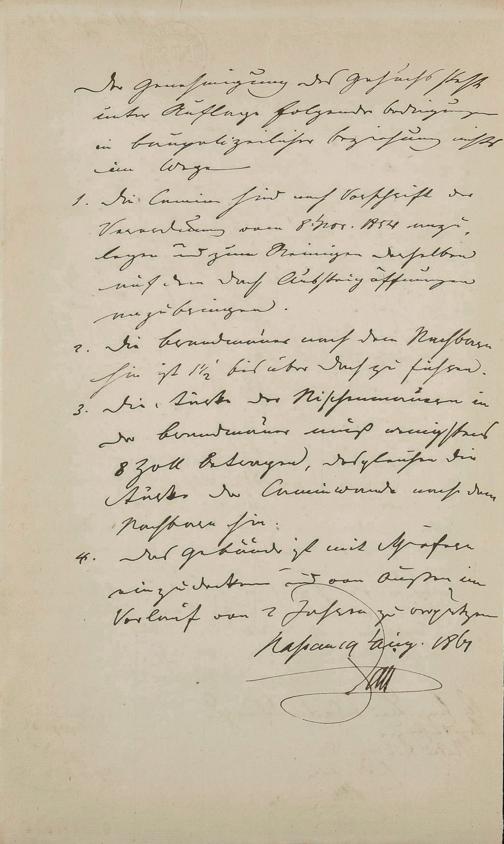 Der Genehmigung des Gesuchs steht
unter Auflage folgender Bedingungen
in baupolizeilicher Beziehung nichts
im Wege
1. Die Camine sind nach Vorschrift der
Verordnung vom 8. Nov. 1854 anzu,
legen und zum Reinigen derselben
auf dem Dach Aussteigöffnungen
anzubringen.
2. Die Brandmauer nach dem Nachbarn
hin ist 1 1/2' bis über Dach zu führen.
3. Die Stärke der Nischenmauern in
der Brandmauer muß wenigstens
8 Zoll betragen, desgleichen die
Stärke der Caminwände nach dem
Nachbarn hin.
4. Das Gebäude ist mit Schiefern
einzudecken und von Außen im
Verlauf von 2 Jahren zu verputzen
Nassau 19 Aug. 1861